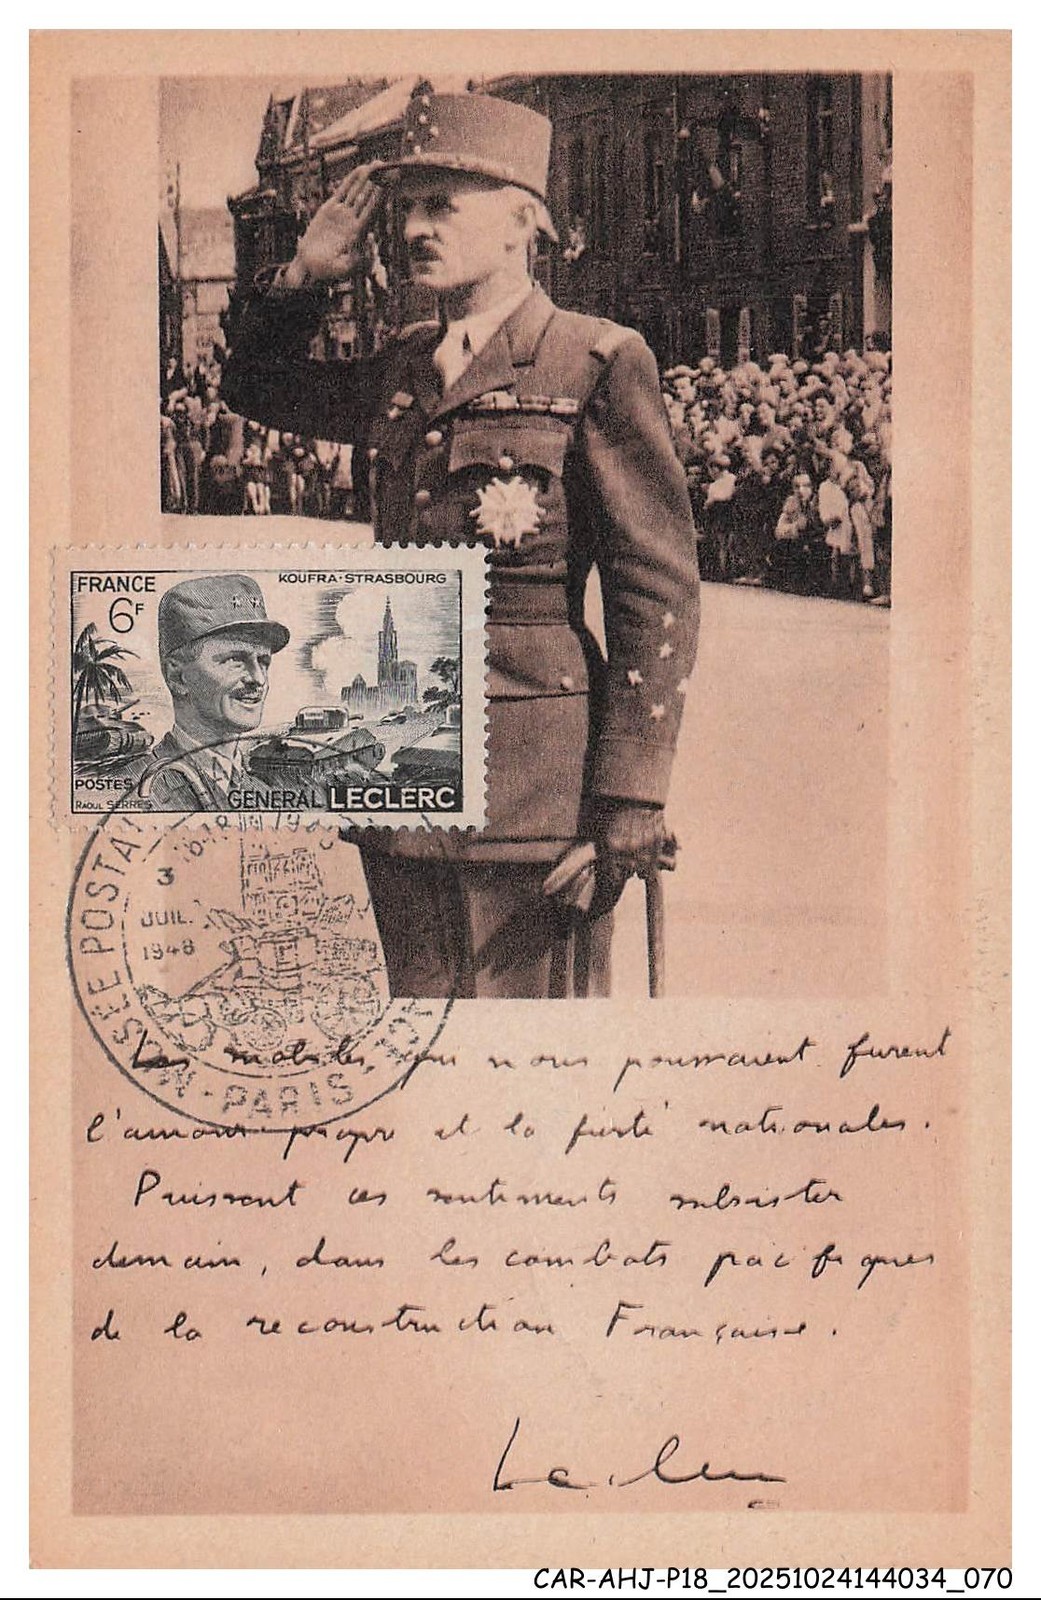 FRANCE
KOUFRA·STRASBOURG
6F
POSTES
RAOUL SERRES
GÉNÉRAL LECLERC
MUSÉE POSTAL
3
JUIL.
1948
PARIS
Les mobiles, qui nous poussaient furent
l'amour-propre et la fierté nationales.
Puissent ces sentiments subsister
demain, dans les combats pacifiques
de la reconstruction Française.
Leclerc
CAR-AHJ-P18_20251024144034_070